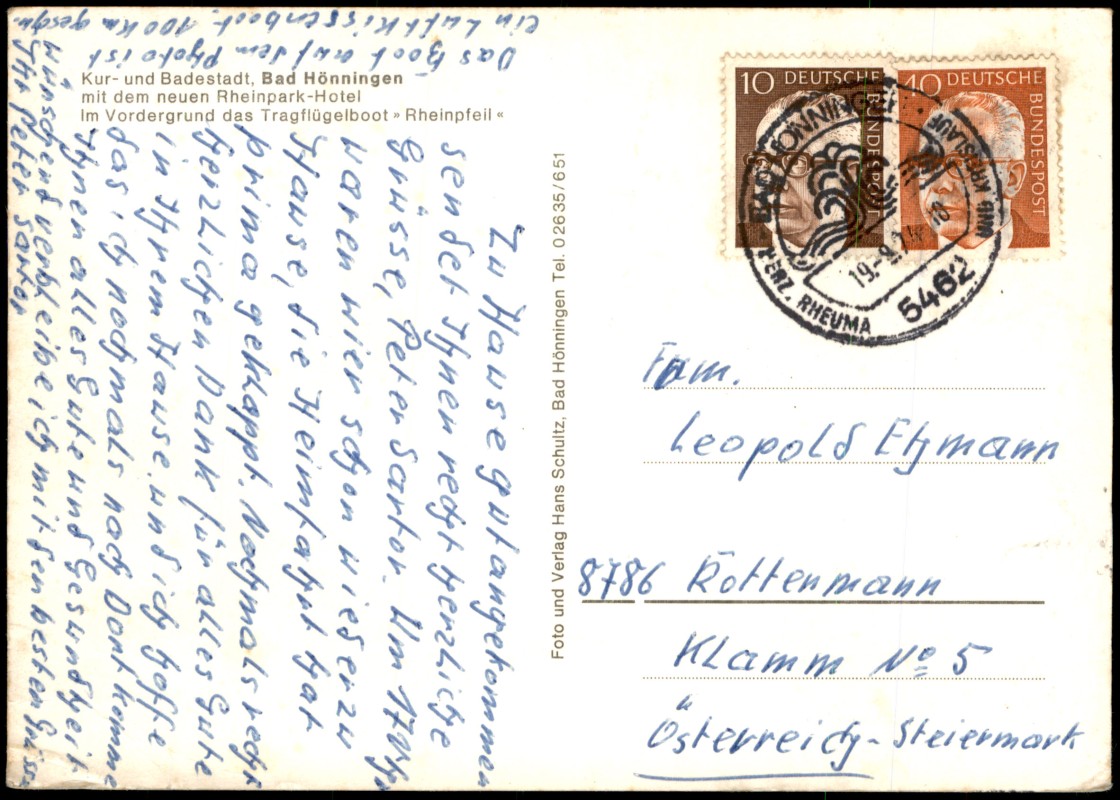 Kur- und Badestadt, Bad Hönningen
mit dem neuen Rheinpark-Hotel
Im Vordergrund das Tragflügelboot » Rheinpfeil «
Zu Hause gut angekommen
sendet Ihnen recht herzliche
Grüsse, Peter Sartor. Um 17 Uhr
waren wier schon wieder zu
Hause, die Heimfahrt hat
prima geklappt. Nochmals recht
herzlichen Dank für alles Gute
in Ihrem Hause. und ich hoffe
das ich nochmals nach Dort komme
Ihnen alles Gute und Gesundheit
wünschend verbleibe ich mit den besten Grüssen
Ihr Peter Sartor
Das Boot auf dem Photo ist
ein Luftkissenboot, 100 km geschw.
Foto und Verlag Hans Schultz, Bad Hönningen Tel. 02635/651
10 DEUTSCHE BUNDESPOST
40 DEUTSCHE BUNDESPOST
BAD HÖNNINGEN
19.-9.74
5462
HERZ. RHEUMA
KREISLAUF
Fam.
Leopold Etzmann
8786 Rottenmann
Klamm No 5
Österreich - Steiermark